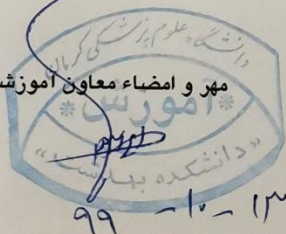 دانشگاه علوم پزشکی کرمان
مهر و امضاء معاون آموزش
*آموزش*
«دانشکده بهداشت»
۹۹ -۱۰- ۱۳